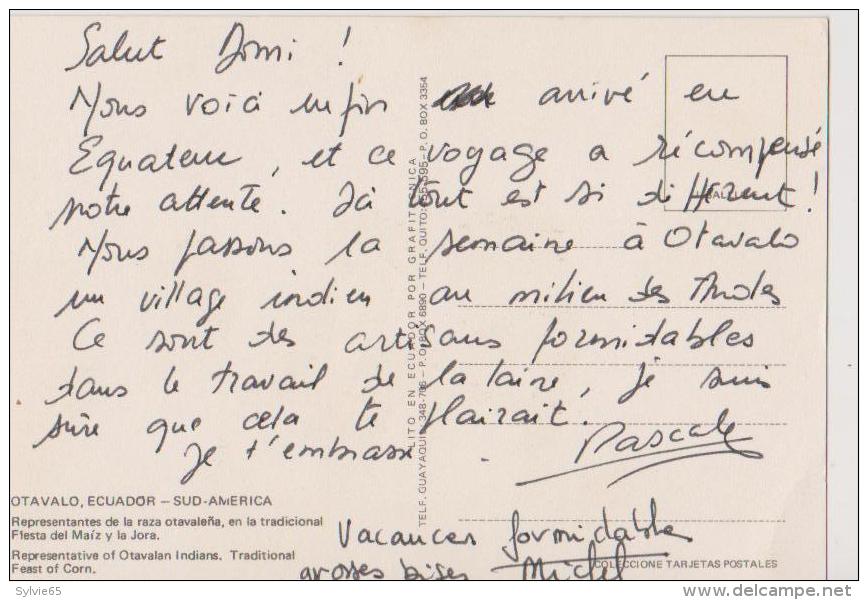 Salut Domi !
Nous voici enfin arrivé en
Equateur, et ce voyage a récompensé
notre attente. Ici tout est si different !
Nous passons la semaine à Otavalo
un village indien au milieu des Andes
Ce sont des artisans formidables
dans le travail de la laine, je suis
sûre que cela te plairait.
je t'embrasse.
Pascale
Vacances formidables
grosses bises Michel
OTAVALO, ECUADOR – SUD-AMERICA
Representantes de la raza otavaleña, en la tradicional
Fiesta del Maíz y la Jora.
Representative of Otavalan Indians. Traditional
Feast of Corn.
LITO EN ECUADOR POR GRAFITECNICA
TELF. GUAYAQUIL 348-796 – P.O. BOX 6890 – TELF. QUITO: – P. O. BOX 3354
COLECCIONE TARJETAS POSTALES
Sylvie65
delcampe.net